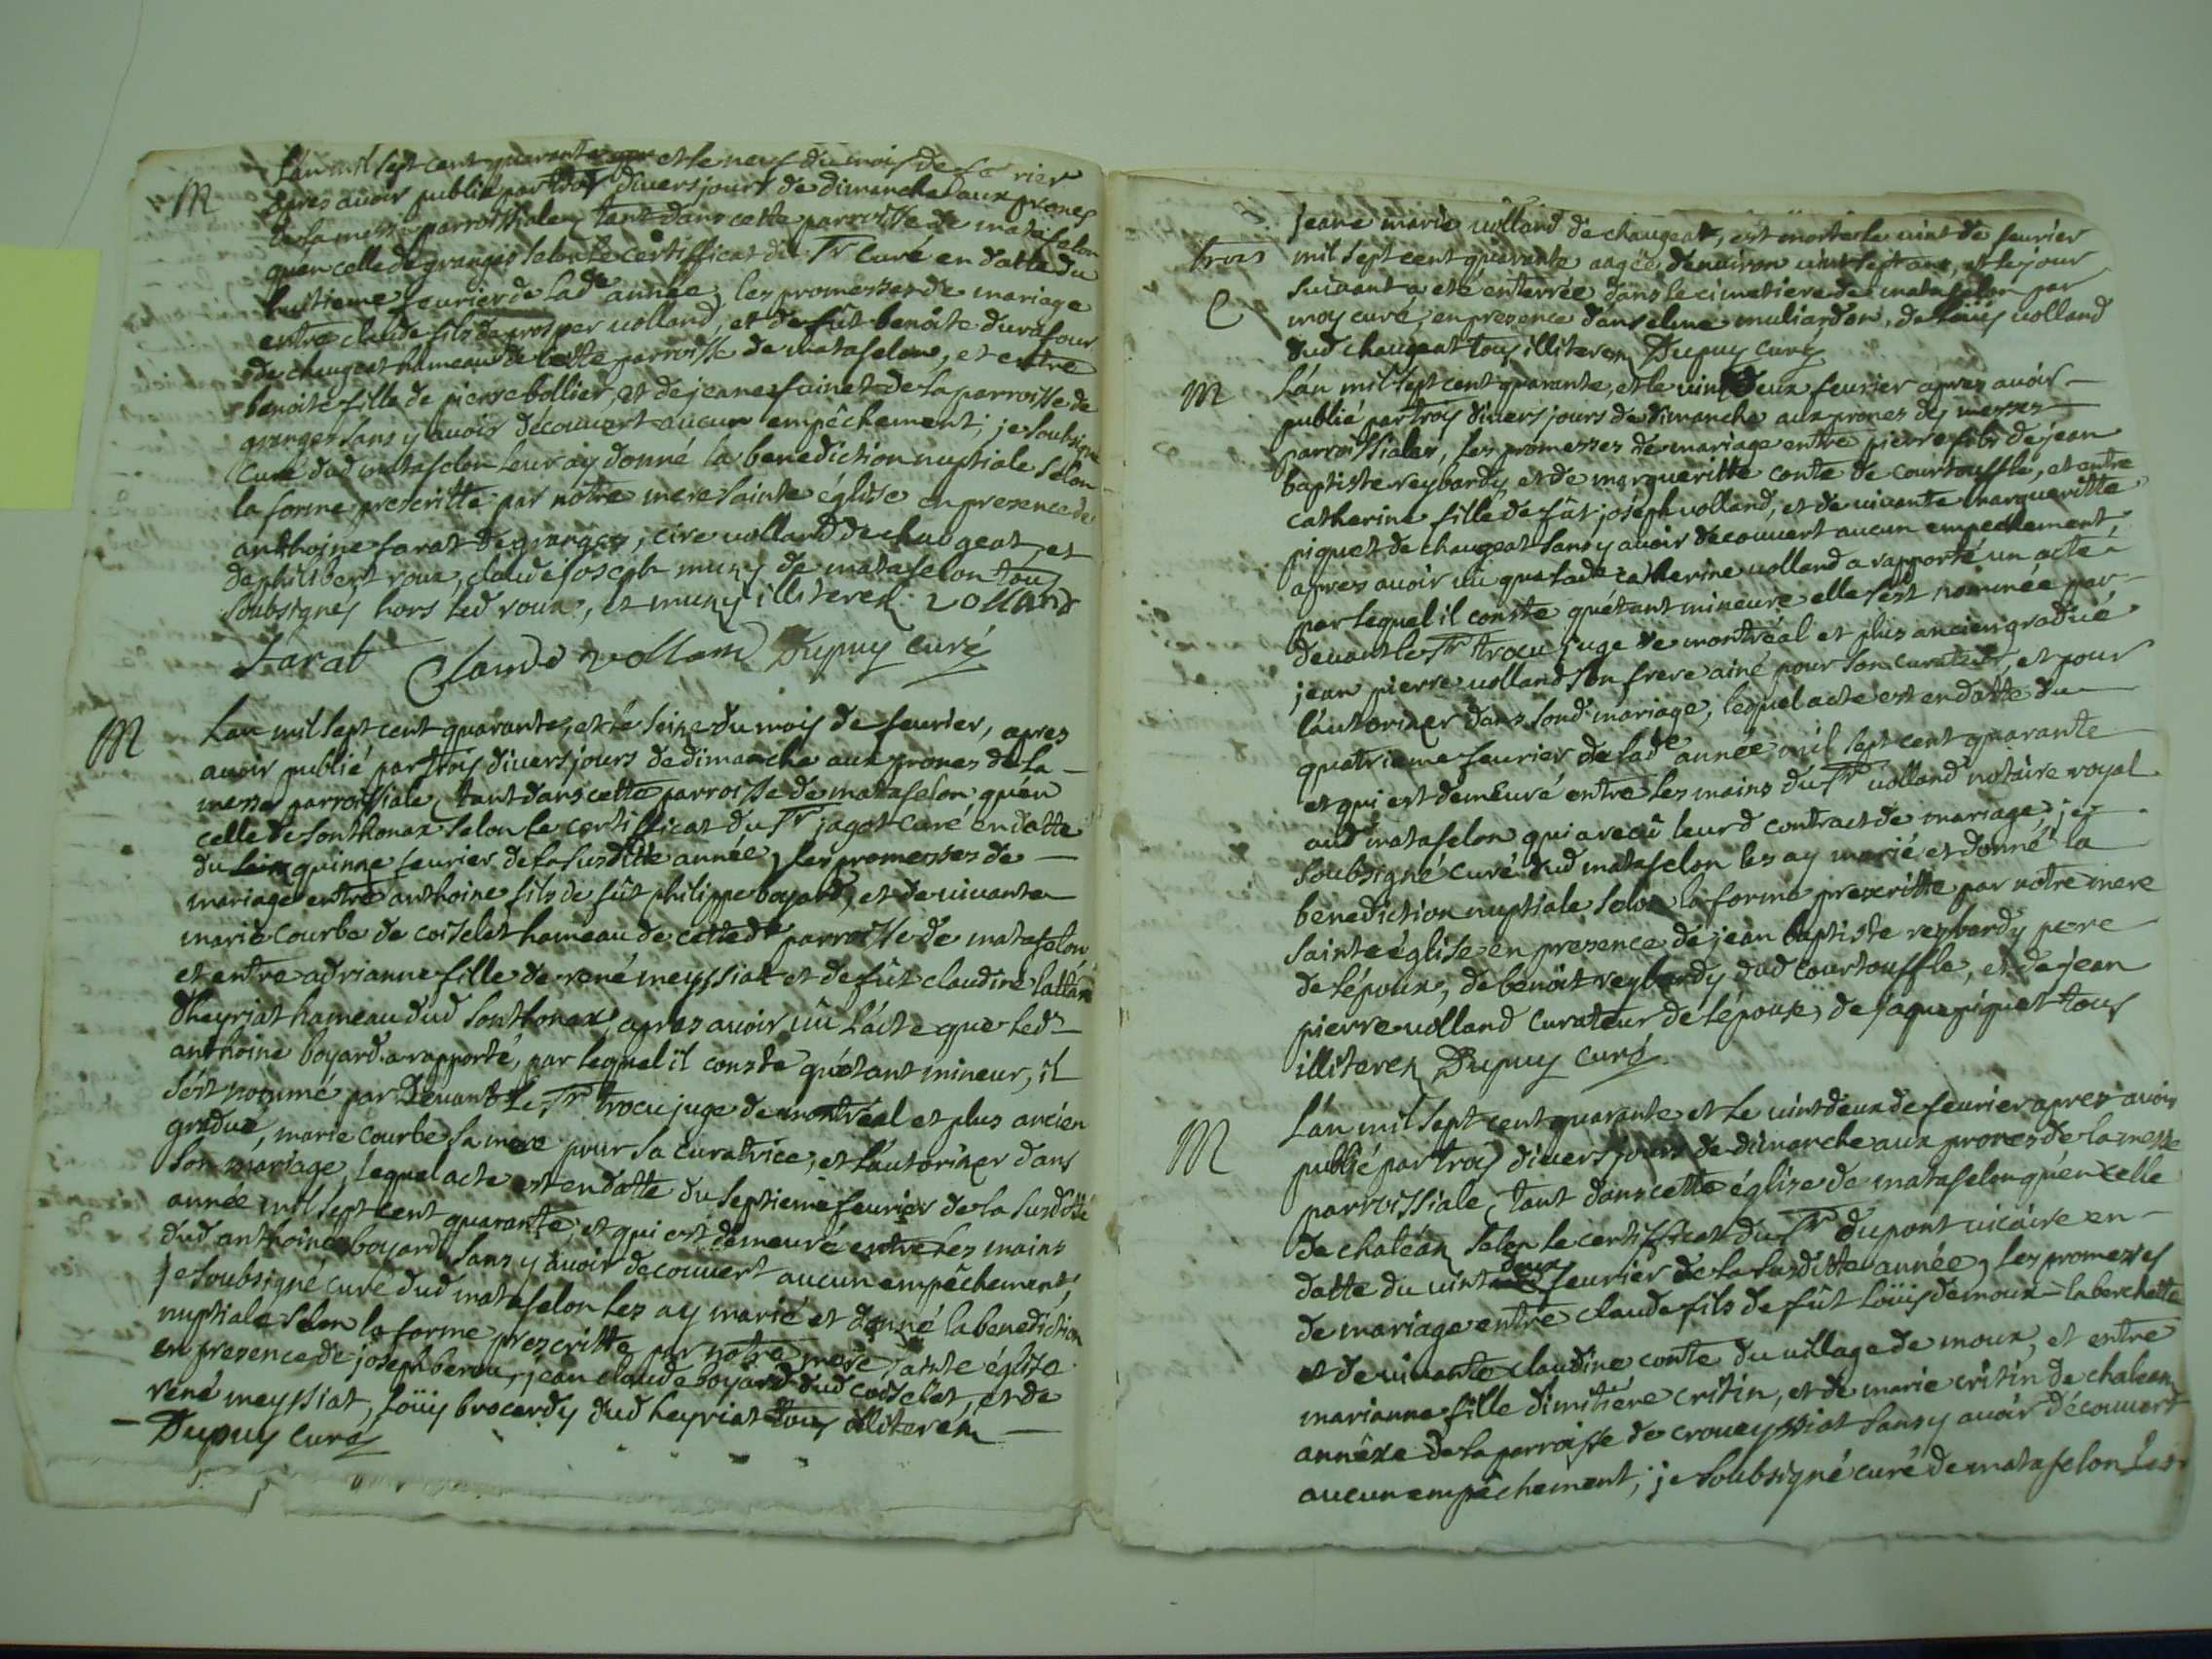 M
L'an mil sept cent quarante et le neuf du mois de fevrier
apres avoir publié par trois divers jours de dimanche aux prones
de la messe parroissiale, tant dans cette parroisse de matafelon
qu'en celle de granges selon le certifficat du Sr curé en datte du
huitieme fevrier de lade année, les promesses de mariage
entre claude fils de prosper volland, et de fût benoite durafour
de changeat hameau de cette parroisse de matafelon, et entre
benoite fille de pierre bollier, et de jeane fuinet de la parroisse de
granges sans y avoir découvert aucun empêchement; je soubsigné
curé dud matafelon leur ay donné la benediction nuptiale selon
la forme prescritte par notre mere sainte église en presence de
anthoine farat de granges, cire volland de changeat, et
de philibert roux, claude joseph muny de matafelon tous
soubsignés hors led roux, et muny illiteres. volland
farat Claude vollam Dupuy curé
M
L'an mil sept cent quarante, et le seize du mois de fevrier, apres
avoir publié par trois divers jours de dimanche aux prones de la
messe parroissiale, tant dans cette parroisse de matafelon qu'en
celle de sonthonax selon le certifficat du Sr jagot curé en datte
du quinze fevrier de la susditte année, les promesses de
mariage entre anthoine fils de fût philippe boyard, et de vivante
marie courbe de coiselet hameau de cettede parroisse de matafelon
et entre adrianne fille de rené meyssiat et de fût claudine
d'heyriat hameau dud sonthonax, apres avoir vû l'acte que led
anthoine boyard a rapporté, par lequel il conste qu'étant mineur, il
s'est nommé par devant le Sr trocu juge de montréal et plus ancien
gradué, marie courbe sa mere pour sa curatrice, et l'autoriser dans
son mariage, lequel acte est en datte du septieme fevrier de la susditte
année mil sept cent quarante, et qui est demeuré entre les mains
dud anthoine boyard, sans y avoir decouvert aucun empêchement,
je soubsigné curé dud matafelon les ay marié et donné la benediction
nuptiale selon la forme prescritte par notre mere sainte église
en presence de joseph berou, jean claude boyard dud coiselet, et de
rené meyssiat, loüy brocardy dud heyriat tous illiteres
Dupuy curé
trois
C
jeane marie volland de changeat, est morte le vint de fevrier
mil sept cent quarante aagée d'environ vint sept ans, et le jour
suivant a eté enterrée dans le cimetiere de matafelon par
moy curé, en presence d'anselme muliardon, de loüis volland
dud changeat tous illiteres Dupuy curé
M
L'an mil sept cent quarante, et le vint deux fevrier apres avoir
publié par trois divers jours de dimanche aux prones des messes
parroissiales, les promesses de mariage entre pierre fils de jean
baptiste reybardy, et de margueritte conte de courtouffle, et entre
catherine fille de fût joséph volland, et de vivante margueritte
piquet de changeat sans y avoir decouvert aucun empechement,
apres avoir vû que lade catherine volland a rapporté un acte
par lequel il conste qu'étant mineure elle s'est nommée par
devant le Sr trocu juge de montréal et plus ancien gradué
jean pierre volland son frere ainé pour son curateur, et pour
l'autoriser dans sond mariage, lequel acte est en datte du
quatrieme fevrier de lade année mil sept cent quarante
et qui est demeuré entre les mains du Sr volland notaire royal
aud matafelon qui a recû leurd contract de mariage, je
soubsigné curé dud matafelon les ay marié et donné la
benediction nuptiale selon la forme prescritte par notre mere
sainte église en presence de jean baptiste reybardy pere
de l'époux, de benoit reybardy dud courtouffle, et de jean
pierre volland curateur de l'épouse, de jaque piquet tous
illiteres Dupuy curé
M
L'an mil sept cent quarante et le vint deux de fevrier apres avoir
publié par trois divers jours de dimanche aux prones de la messe
parroissiale, tant dans cette église de matafelon qu'en celle
de chaléan selon le certifficat du Sr dupont vicaire en
datte du vint deux fevrier de la susditte année, les promesses
de mariage entre claude fils de fût loüis demoux-laberchette
et de vivante claudine conte du village de moux, et entre
marianne fille dimitiere critin, et de marie critin de chalean
annêxe de la parroisse de croueyssiat sans y avoir découvert
aucun empêchement, je soubsigné curé de matafelon les